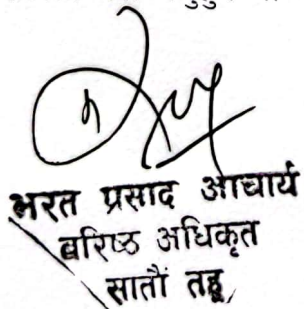 भरत प्रसाद आचार्य
बरिष्ठ अधिकृत
सातौं तह